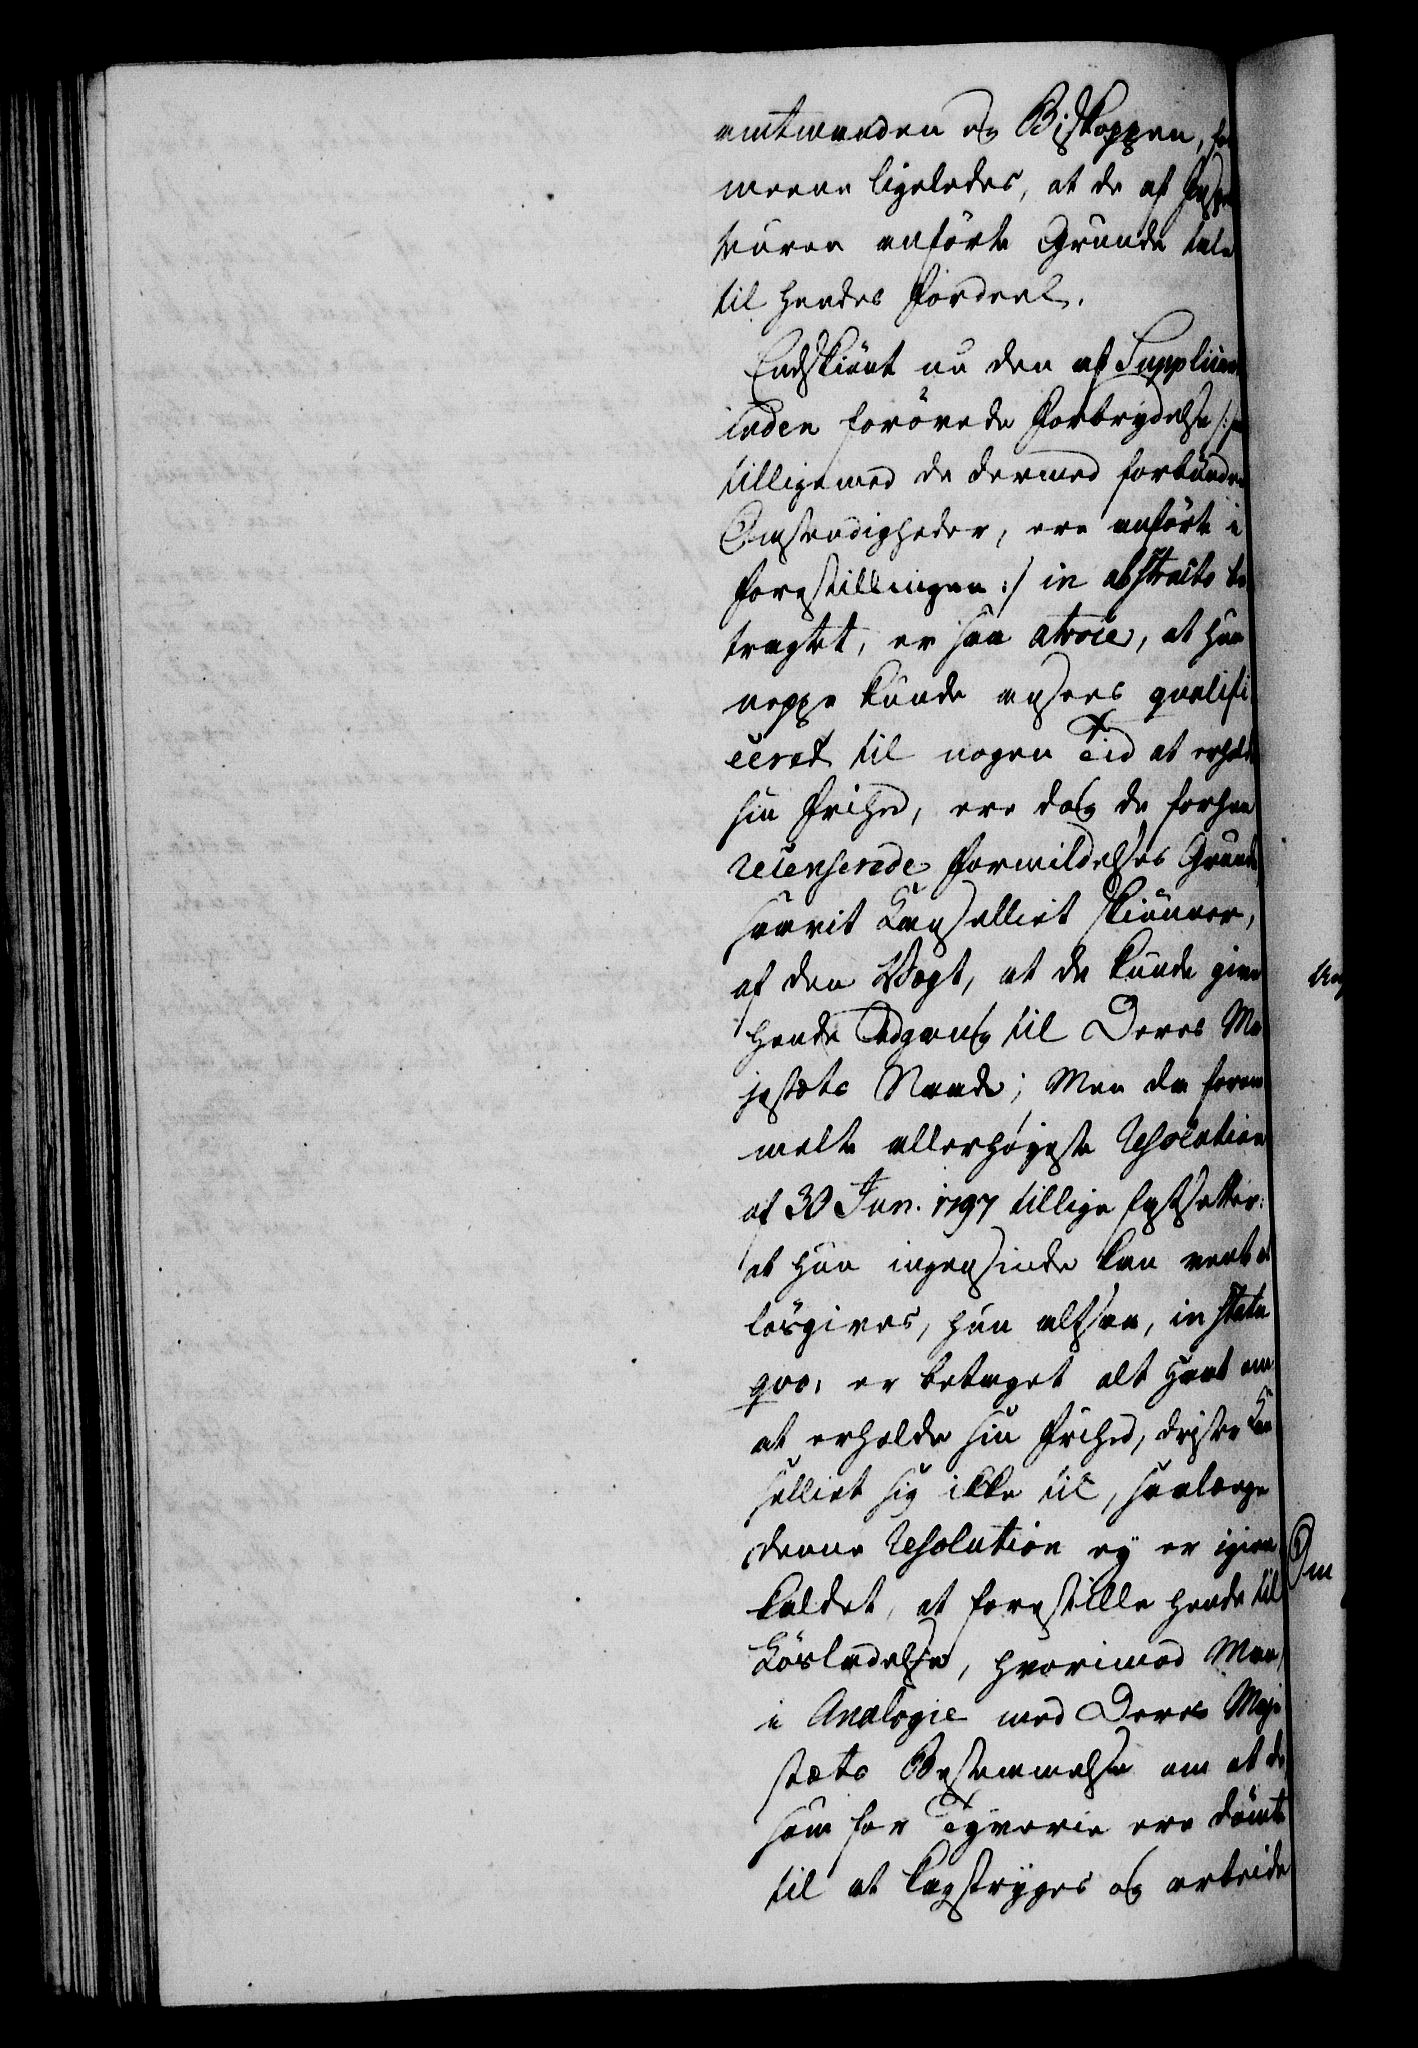 amtmanden og Biskoppen,
meene ligeledes, at de af Inspec
teuren anförte Grunde tale
til hendes Fordeel.
Endskiönt nu den af Supplican
inden forövede Forbrydelse /: som
tilligemed de dermed forbundne
Omstændigheder, ere anförte i
Forestillingen :/ in abstracto be
tragtet, er saa atroce, at hun
neppe kunde ansees qvalifi
ceret til nogen Tid at erholde
sin Frihed, ere dog de forhen
recenserede Formildelses Grunde
saavit Cancelliet skiönner,
af den Vægt, at de kunde give
hende Adgang til Deres Ma
jestæts Naade; Men da foran
melte allerhøyeste Resolution
af 30 Jun. 1797 tillige fastsetter:
at hun ingensinde kan vente at
lösgives, hun altsaa, in statu
qvo, er betaget alt Haab om
at erholde sin Frihed, drister Can
celliet sig ikke til, saalænge
denne Resolution ey er igien
kaldet, at forestille hende til
Lösladelse, hvorimod Man,
i Analogie med Deres Maje
stæts Bestemmelse om at de
som for Tyverie ere dömte
til at kagstryges og arbeide
Om